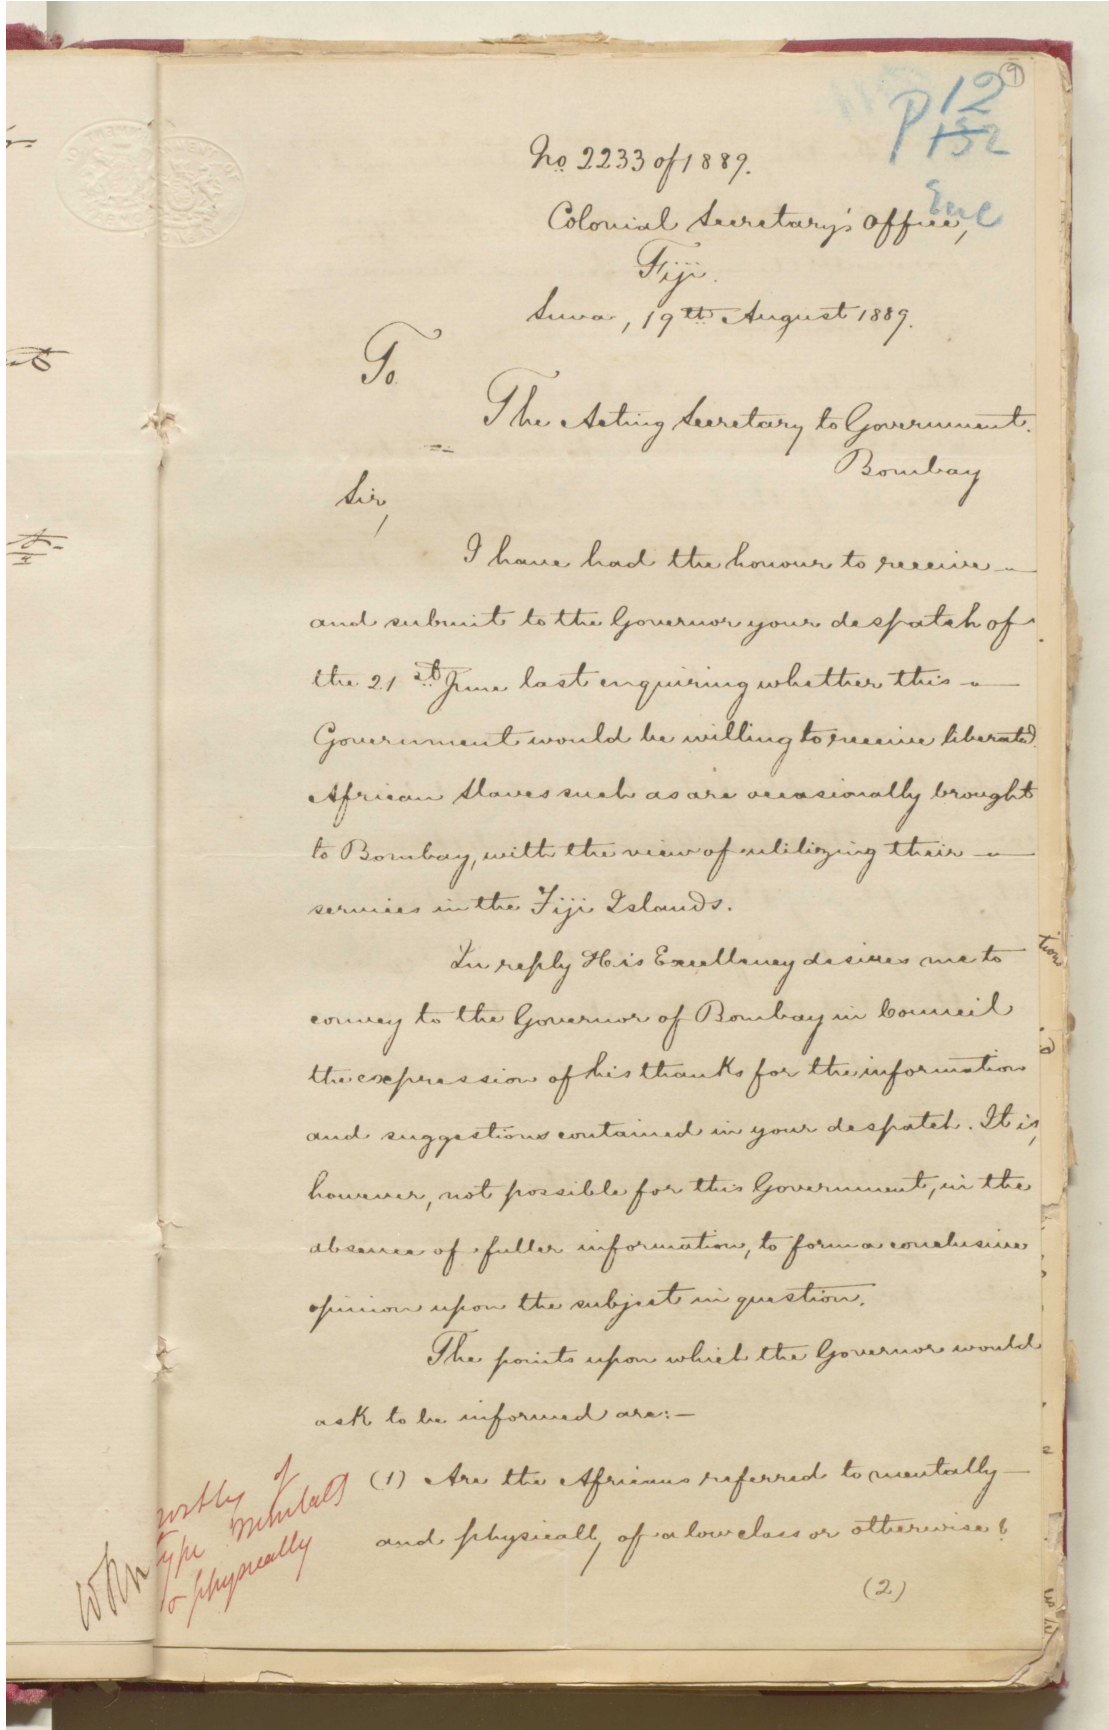 9
P 12
152
Enc
No 2233 of 1889.
Colonial Secretary's Office,
Fiji.
Suva, 19th August 1889.
To
The Acting Secretary to Government.
Bombay
Sir,
I have had the honour to receive
and submit to the Governor your despatch of
the 21st June last enquiring whether this
Government would be willing to receive liberated
African Slaves such as are occasionally brought
to Bombay, with the view of utilizing their
services in the Fiji Islands.
In reply His Excellency desires me to
convey to the Governor of Bombay in Council
the expression of his thanks for the information
and suggestions contained in your despatch. It is,
however, not possible for this Government, in the
absence of fuller information, to form a conclusive
opinion upon the subject in question.
The points upon which the Governor would
ask to be informed are:—
(1) Are the Africans referred to mentally
and physically of a low class or otherwise?
of
type mentally
& physically
(2)